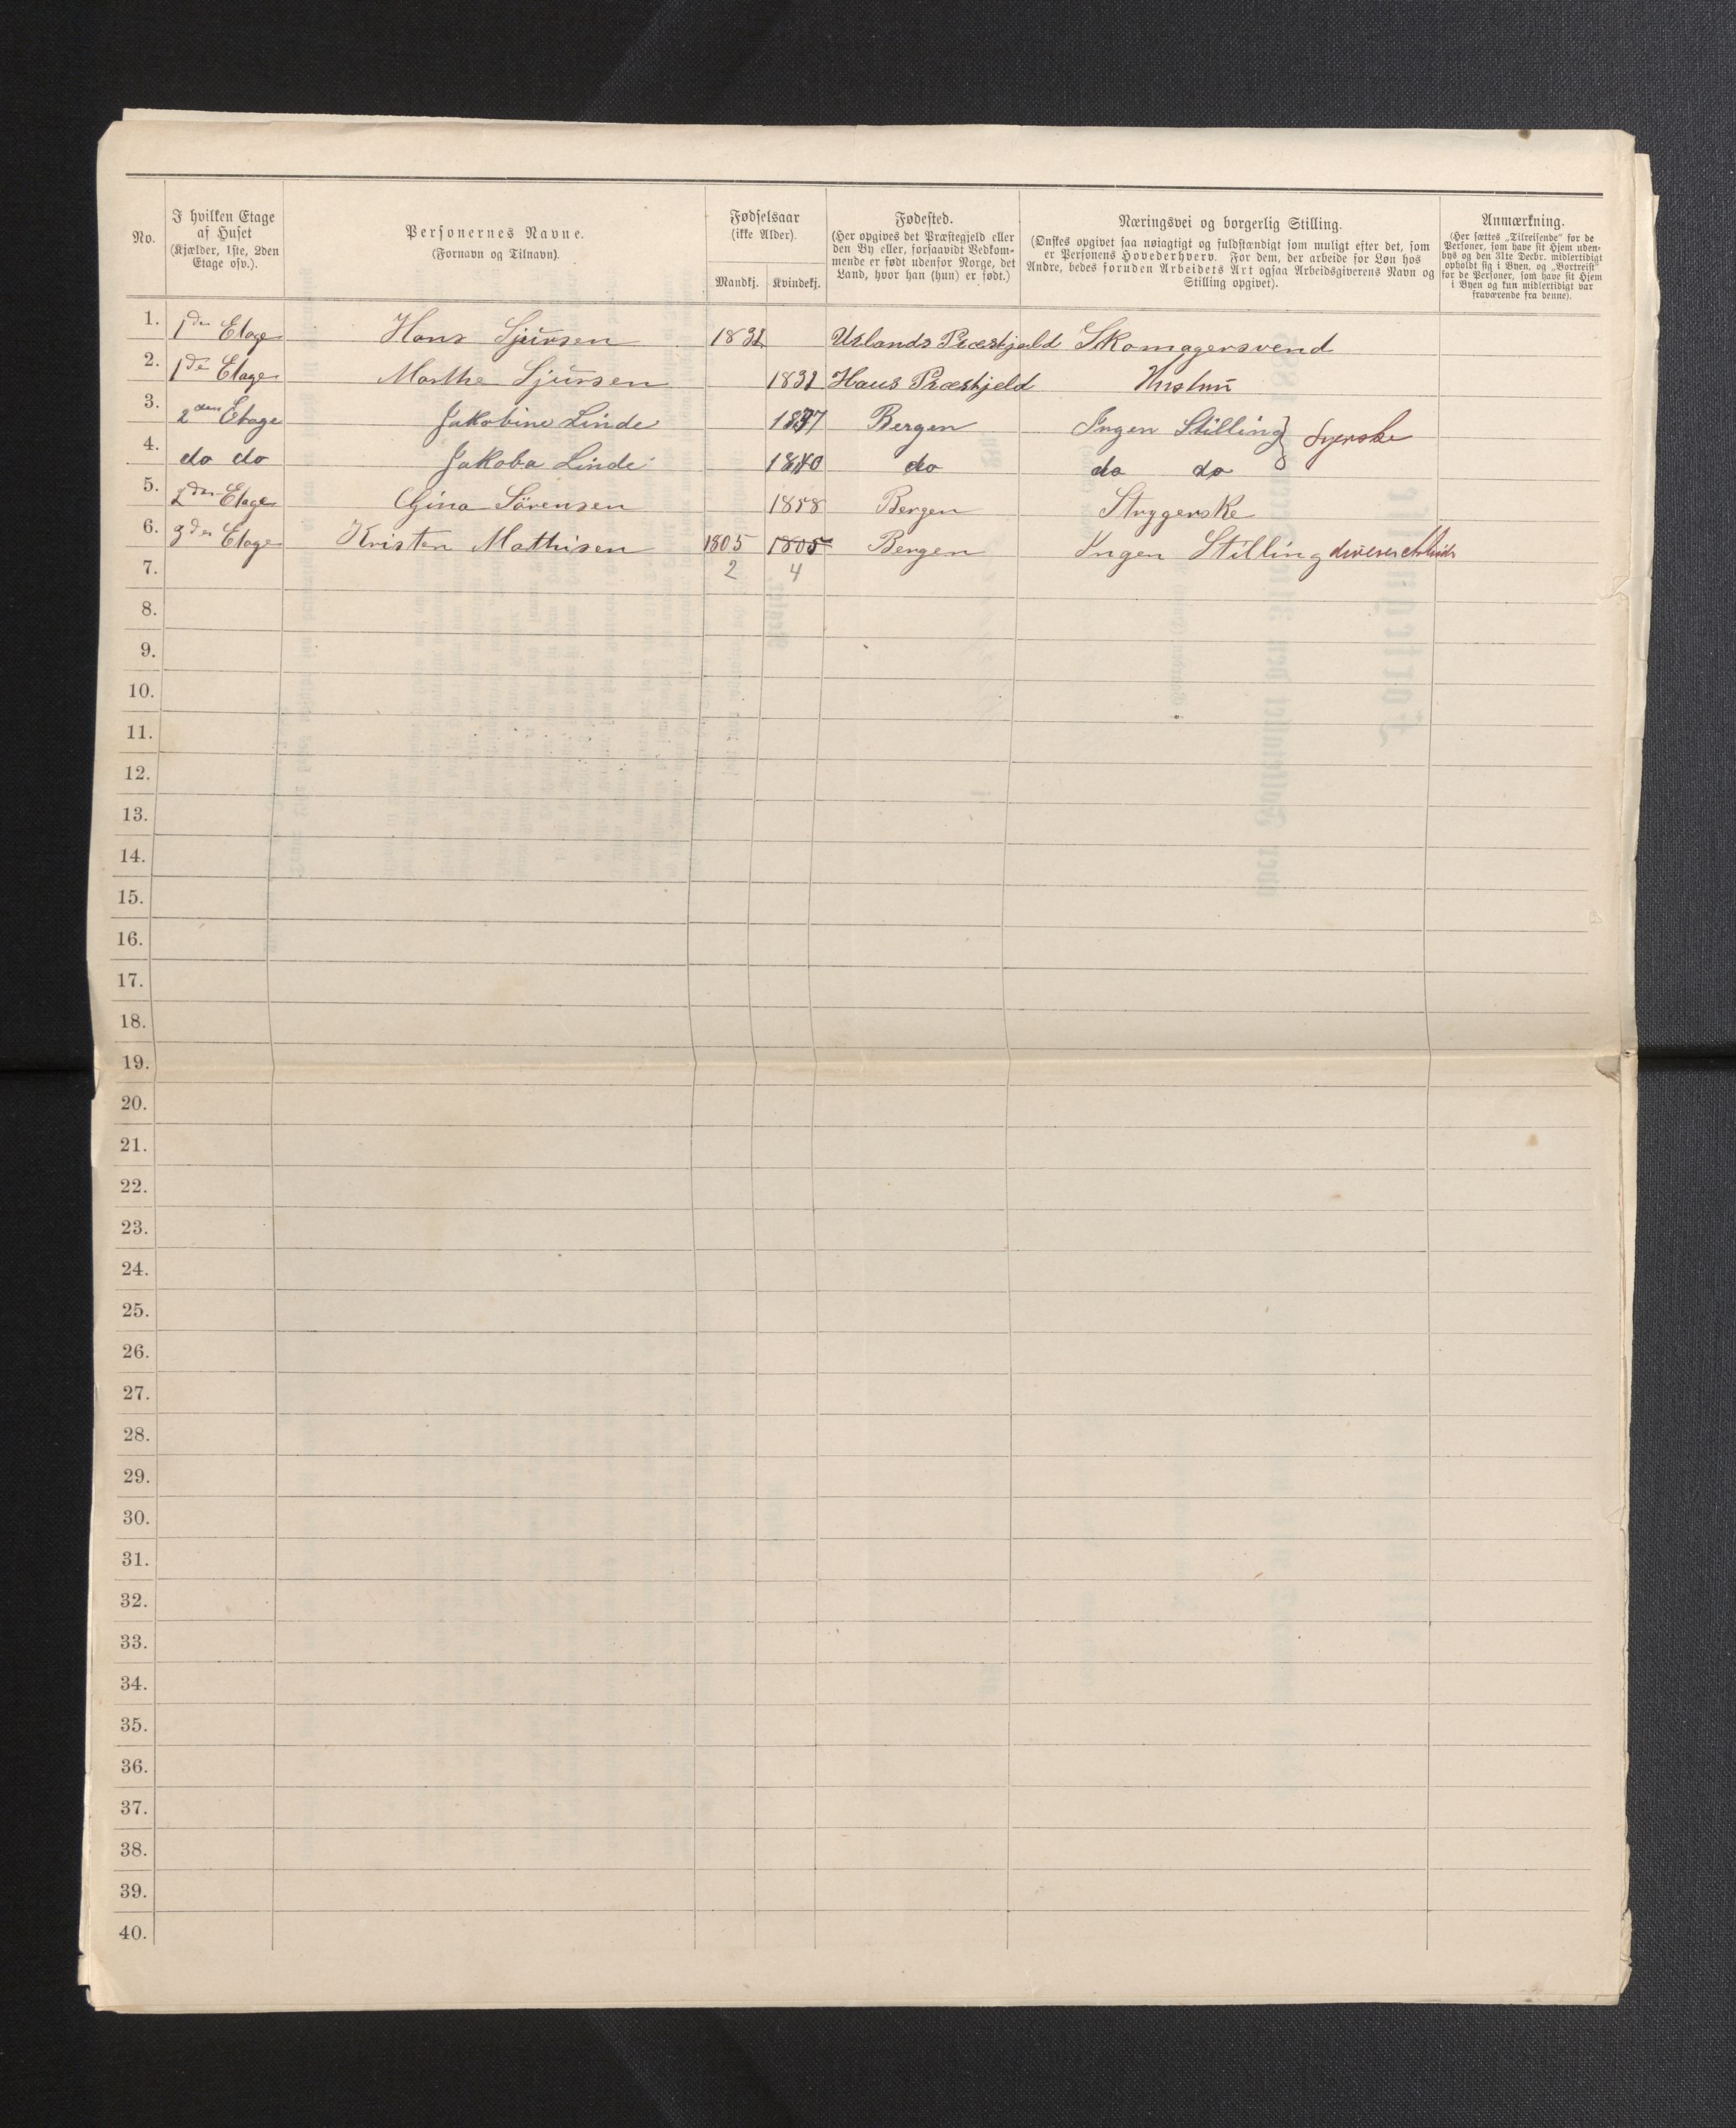 No.
I hvilken Etage
af Huset
(Kjælder, 1ste, 2den
Etage osv.).
Personernes Navne.
(Fornavn og Tilnavn).
Fødselsaar
(ikke Alder).
Mandkj. Kvindekj.
Fødested.
(Her opgives det Præstegjeld eller
den By eller, forsaavidt Vedkom-
mende er født udenfor Norge, det
Land, hvor han (hun) er født.)
Næringsvei og borgerlig Stilling.
(Ønskes opgivet saa nøiagtigt og fuldstændigt som muligt efter det, som
er Personens Hovederhverv. For dem, der arbeide for Løn hos
Andre, bedes foruden Arbeidets Art ogsaa Arbeidsgiverens Navn og
Stilling opgivet).
Anmærkning.
(Her sættes „Tilreisende“ for de
Personer, som have sit Hjem uden-
bys og den 31te Decbr. midlertidigt
opholdt sig i Byen, og „Bortreist“
for de Personer, som have sit Hjem
i Byen og kun midlertidigt var
fraværende fra denne).
1. 1den Etage Hans Sjursen 1831 Urlands Præstjeld Skomagersvend
2. 1de Etage Marthe Sjursen 1831 Haus Præstjeld Hustru
3. 2den Etage Jakobine Linde 1837 Bergen Ingen Stilling } Syerske
4. do do Jakoba Linde 1840 do do do
5. 2den Etage Gina Sörensen 1858 Bergen Strygerske
6. 3den Etage Kristen Mathisen 1805 1805 Bergen Ingen Stilling diverse Arbeide
7. 2 4
8.
9.
10.
11.
12.
13.
14.
15.
16.
17.
18.
19.
20.
21.
22.
23.
24.
25.
26.
27.
28.
29.
30.
31.
32.
33.
34.
35.
36.
37.
38.
39.
40.